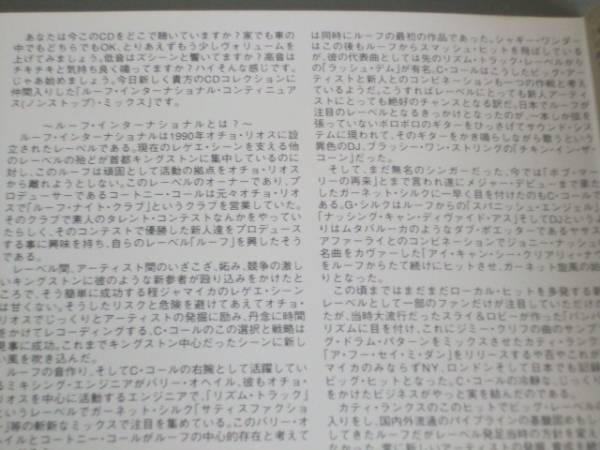 あなたは今このCDをどこで聴いていますか？家でも車の
中でもどちらでもOK、とりあえずもう少しヴォリュームを
上げてみましょう。低音はズシーンと響いてますか？高音は
チキチキと気持ち良く鳴ってますか？ハイそんな感じです。
じゃあ始めましょう。今日新しく貴方のCDコレクションに
仲間入りした「ルーフ・インターナショナル・コンティニュア
ス(ノンストップ)・ミックス」です。
〜ルーフ・インターナショナルとは？〜
ルーフ・インターナショナルは1990年オチョ・リオスに設
立されたレーベルである。現在のレゲエ・シーンを支える他
のレーベルの殆どが首都キングストンに集中しているのに
対し、このルーフは頑固として活動の拠点をオチョ・リオス
から離れようとしない。このレーベルのオーナーであり、プ
ロデューサーであるコートニー・コールは元々オチョ・リオ
スで「ルーフ・ナイト・クラブ」というクラブを営業していた。
そのクラブで素人のタレント・コンテストなんかをやってい
たらしく、そのコンテストで優勝した新人達をプロデュース
する事に興味を持ち、自らのレーベル「ルーフ」を興したそう
である。
レーベル間、アーティスト間のいざこざ、妬み、競争の激し
いキングストンに彼のような新参者が殴り込みをかけたと
ころで、そう簡単に成功する程ジャマイカのレゲエ・シーン
は甘くない。そうしたリスクと危険を避けてあえてオチョ・
リオスでじっくりとアーティストの発掘に励み、丹念に時間
をかけてレコーディングする、C・コールのこの選択と戦略は
見事に成功。これまでキングストン中心だったシーンに新し
い風を吹き込んだ。
ルーフの音作り、そしてC・コールの右腕として活躍してい
るミキシング・エンジニアがバリー・オヘイル。彼もオチョ・
リオスを中心に活動するエンジニアで、「リズム・トラック」
というレーベルでガーネット・シルク「サティスファクショ
ン」等の斬新なミックスで注目を集めている。このバリー・オ
ヘイルとコートニー・コールがルーフの中心的存在と考えて
は同時にルーフの最初の作品であった。シャギー・ワンダー
はこの後もルーフからスマッシュ・ヒットを飛ばしている
が、彼の代表曲としては先のリズム・トラック・レーベルから
の「ラッシュ・デム」が有名。C・コールはこうしたビッグ・アー
ティストと新人とのコンビネーションも一つの作戦と考え
ているようだ。こうすればレーベルにとっても新人アーティ
ストにとっても絶好のチャンスとなる訳だ。日本でルーフが
注目のレーベルとなるきっかけとなったのが、一本しか弦を
張っていないボロボロのギターをひっさげてサウンドシス
テムに現われて、そのギターをかき鳴らしながら歌うという
異色のDJ、ブラッシー・ワン・ストリングの「チキン・イン・ザ・
コーン」だった。
そして、まだ無名のシンガーだった、今では「ボブ・マー
リーの再来」とまで言われ遂にメジャー・デビューまで果た
したガーネット・シルクに一早く目を付けたのもC・コールで
ある。G・シルクはルーフからの「スパニッシュ・エンジェル」
「ナッシング・キャン・ディヴァイド・アス」そしてDJというよ
りはムタバルーカのようなダブ・ポエッターであるヤサス・
アファーライとのコンビネーションでジョニー・ナッシュの
名曲をカヴァーした「アイ・キャン・シー・クリアリィ・ナウ」
をルーフからたて続けにヒットさせ、ガーネット旋風の始ま
りとなった。
この頃まではまだまだローカル・ヒットを多発する新興
レーベルとして一部のファンだけが注目していただけだっ
たが、当時大流行だったスライ＆ロビーが作った「バンバン」
リズムに目を付け、これにジミー・クリフの曲のサンプリン
グ・ドラム・パターンをミックスさせたカティ・ランクスの
「ア・フー・セイ・ミ・ダン」をリリースするや否やこれがジャ
マイカのみならずNY、ロンドンそして日本でも記録的な
ビッグ・ヒットとなった。C・コールの冷静な、じっくりと時間
をかけたビジネスがやっと実を結んだのである。
カティ・ランクスのこのヒットでビッグ・レーベルの仲間
入りをし、国内外流通のパイプラインの基盤固めもしっかり
してきたルーフだがレーベル発足当時の方針を変える事
なかった。常に新しいアーティストの発掘、育成を続け